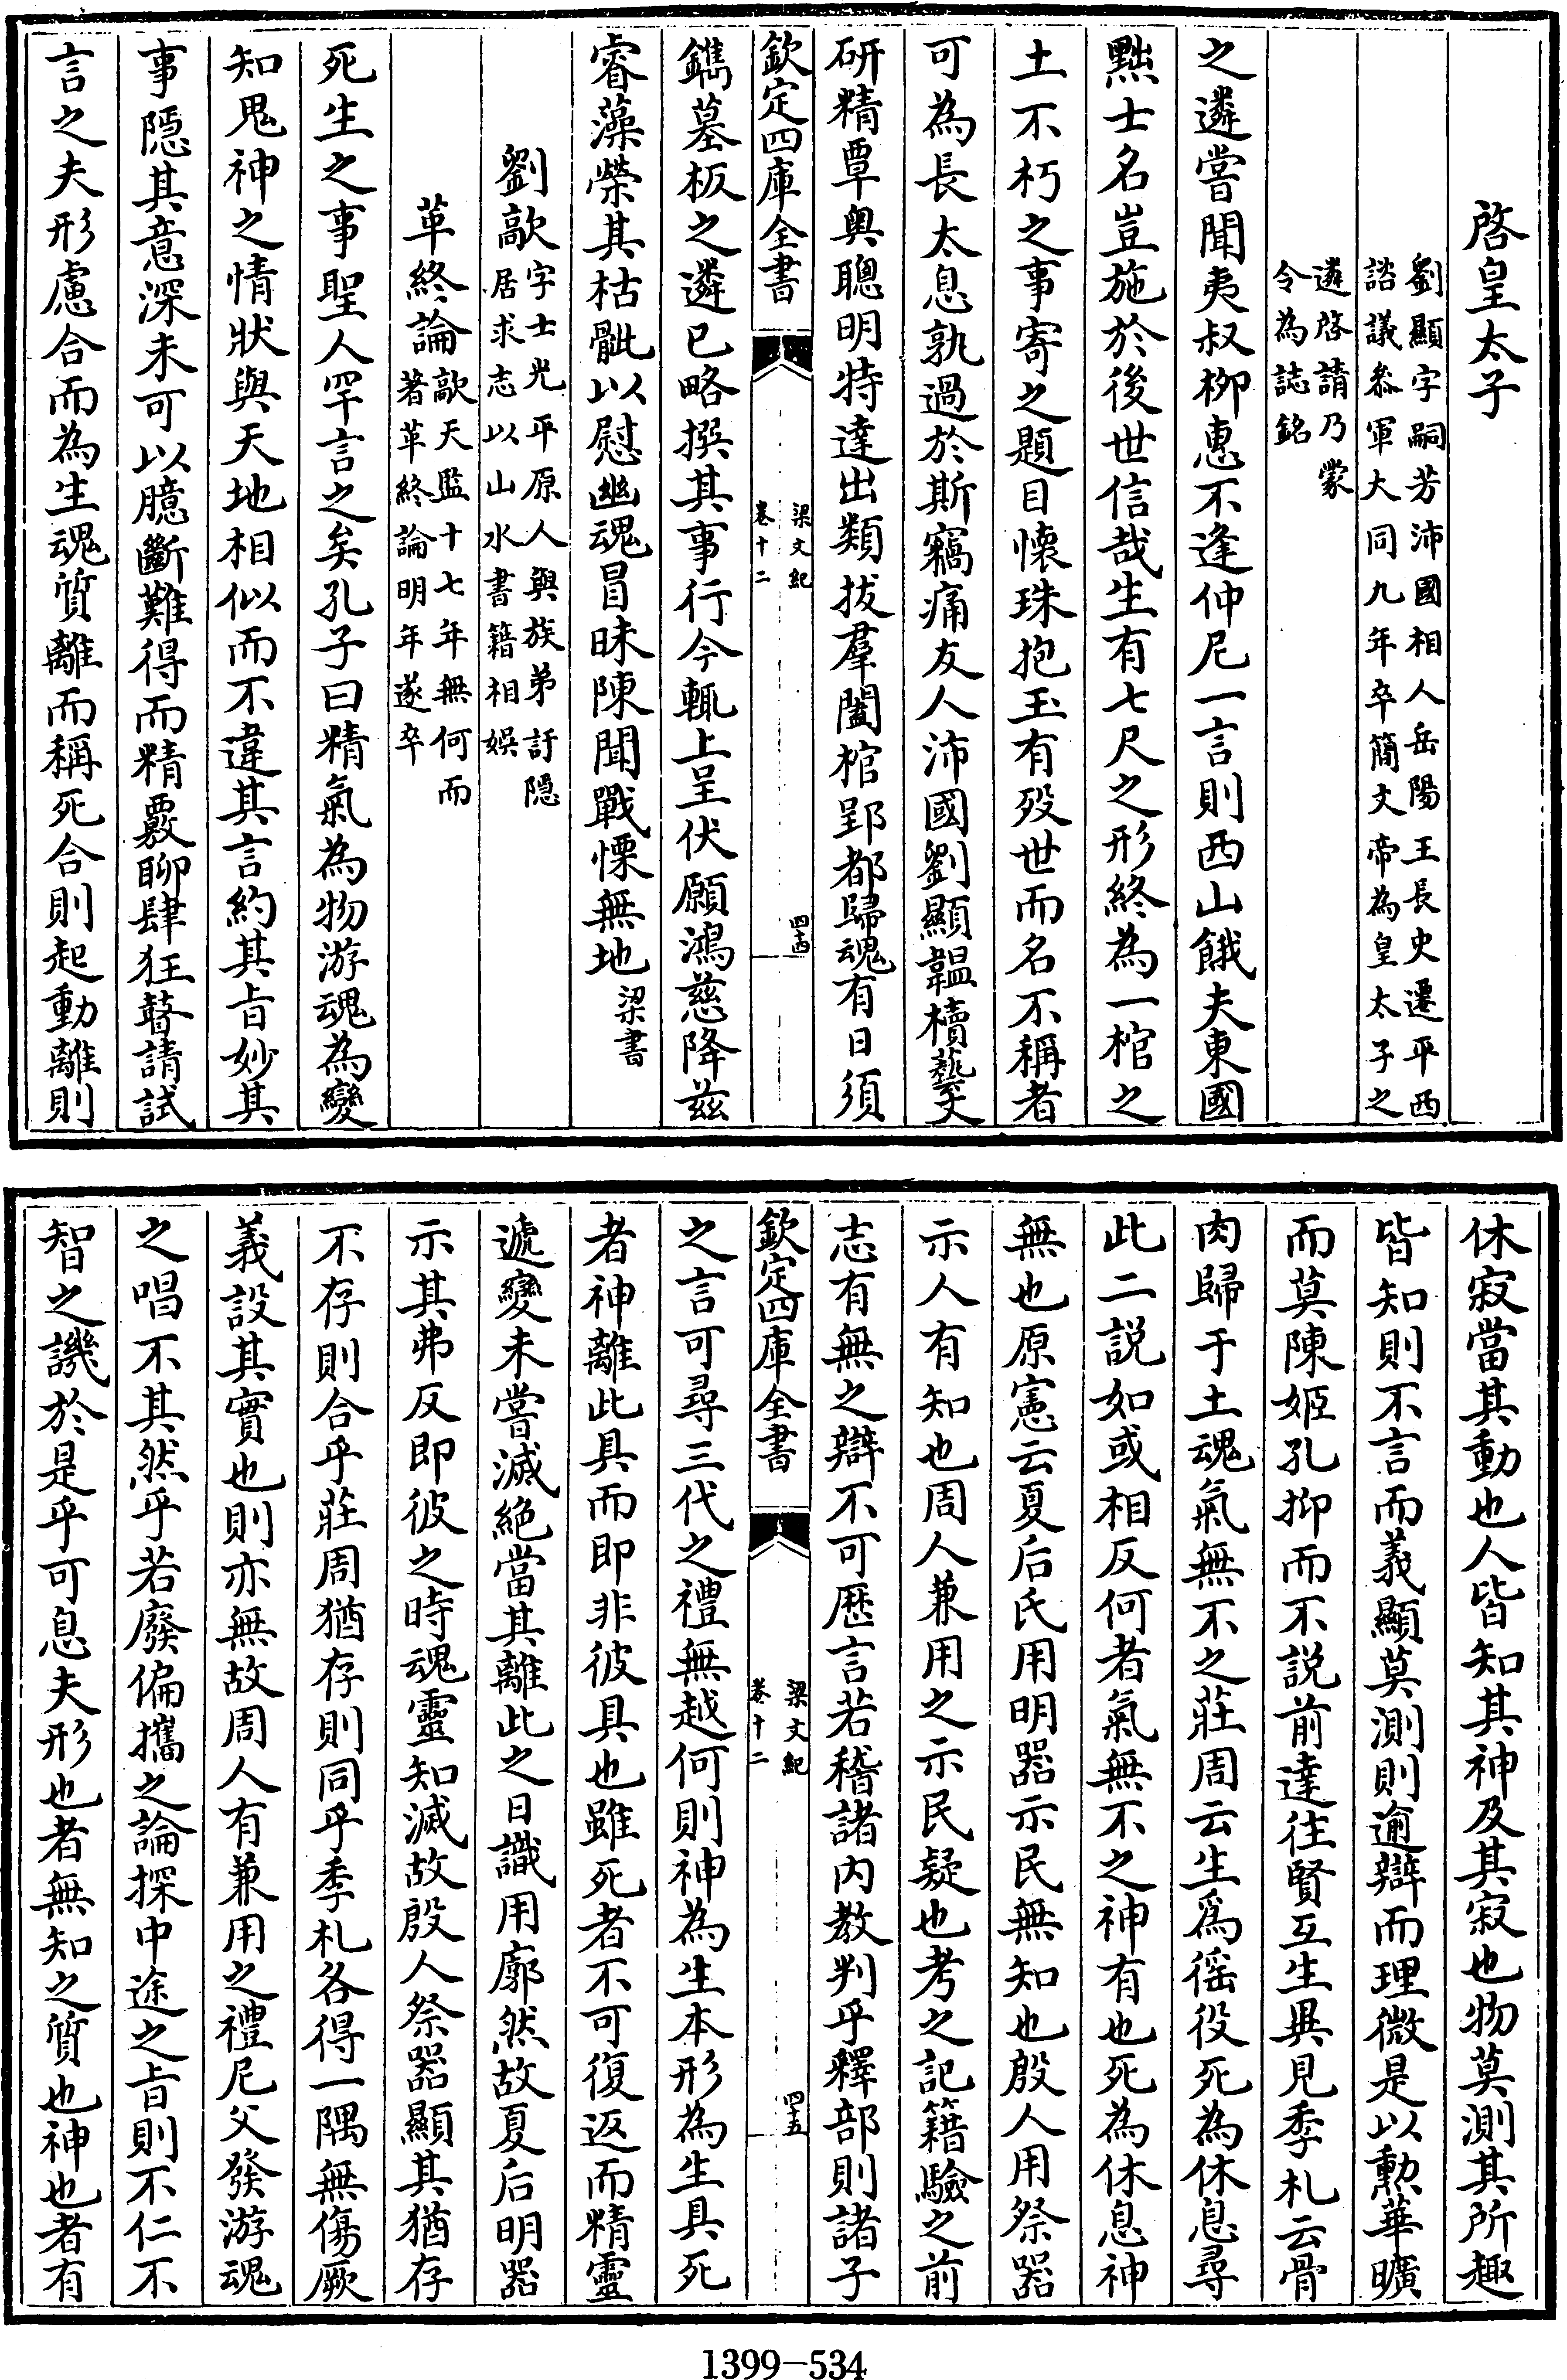 啓皇太子
劉顯字嗣芳沛國相人岳陽王長史遷平西
諮議叅軍大同九年卒簡文帝為皇太子之
遴啓請乃蒙
令為誌銘
之遴嘗聞夷叔栁惠不逢仲尼一言則西山餓夫東國
黜士名豈施於後世信哉生有七尺之形終為一棺之
土不朽之事寄之題目懐珠抱玉有殁世而名不稱者
可為長太息孰過於斯竊痛友人沛國劉顯韞櫝藝文
研精覃奥聰明特達出類拔羣闔棺郢都歸魂有日須
欽定四庫全書
梁文紀
卷十二
四十四
鐫墓板之遴已略撰其事行今輒上呈伏願鴻慈降兹
睿藻榮其枯骴以慰幽魂冒昧陳聞戰慄無地梁書
劉歊字士光平原人與族弟訏隠
居求志以山水書籍相娯
革終論歊天監十七年無何而
著革終論明年遂卒
死生之事聖人罕言之矣孔子曰精氣為物游魂為變
知鬼神之情狀與天地相似而不違其言約其㫖妙其
事隠其意深未可以臆斷難得而精覈聊肆狂瞽請試
言之夫形慮合而為生魂質離而稱死合則起動離則
休寂當其動也人皆知其神及其寂也物莫測其所趣
皆知則不言而義顯莫測則逾辯而理微是以勲華曠
而莫陳姬孔抑而不説前達往賢互生異見季札云骨
肉歸于土魂氣無不之莊周云生爲徭役死為休息尋
此二説如或相反何者氣無不之神有也死為休息神
無也原憲云夏后氏用明器示民無知也殷人用祭器
示人有知也周人兼用之示民疑也考之記籍驗之前
志有無之辯不可歴言若稽諸内教判乎釋部則諸子
欽定四庫全書
梁文紀
卷十二
四十五
之言可尋三代之禮無越何則神為生本形為生具死
者神離此具而即非彼具也雖死者不可復返而精靈
遞變未嘗滅絶當其離此之日識用廓然故夏后明器
示其弗反即彼之時魂靈知滅故殷人祭器顯其猶存
不存則合乎莊周猶存則同乎季札各得一隅無傷厥
義設其實也則亦無故周人有兼用之禮尼父發游魂
之唱不其然乎若廢偏攜之論探中途之㫖則不仁不
智之譏於是乎可息夫形也者無知之質也神也者有
1399-534